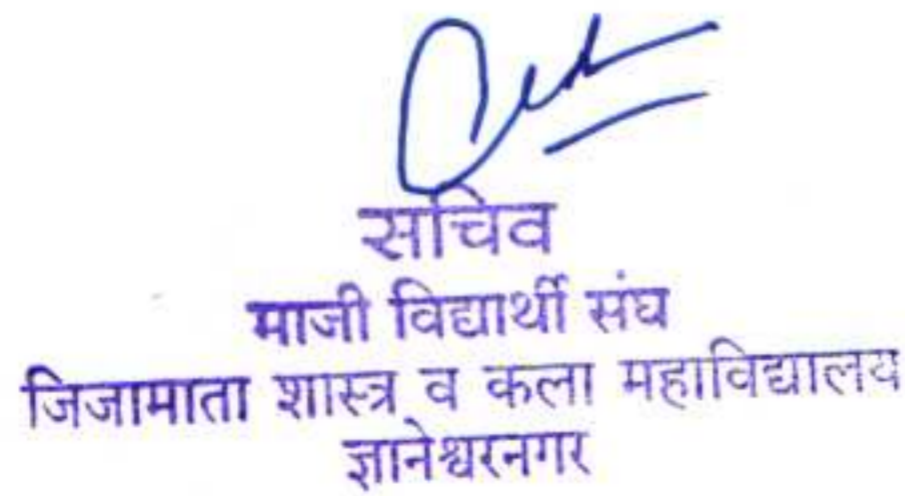 सचिव
माजी विद्यार्थी संघ
जिजामाता शास्त्र व कला महाविद्यालय
ज्ञानेश्वरनगर